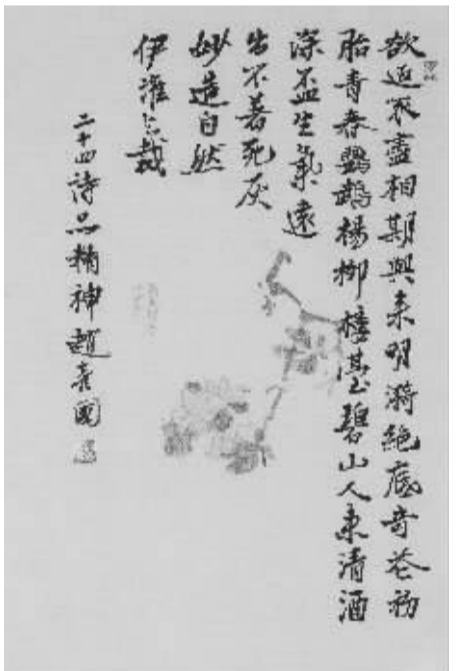 欲返不盡相期與来明漪絕底奇花初
胎青春鸚鵡楊柳樓臺碧山人来清酒
深盃生氣遠
出不著死灰
妙造自然
伊誰与裁
二十四詩品精神趙國